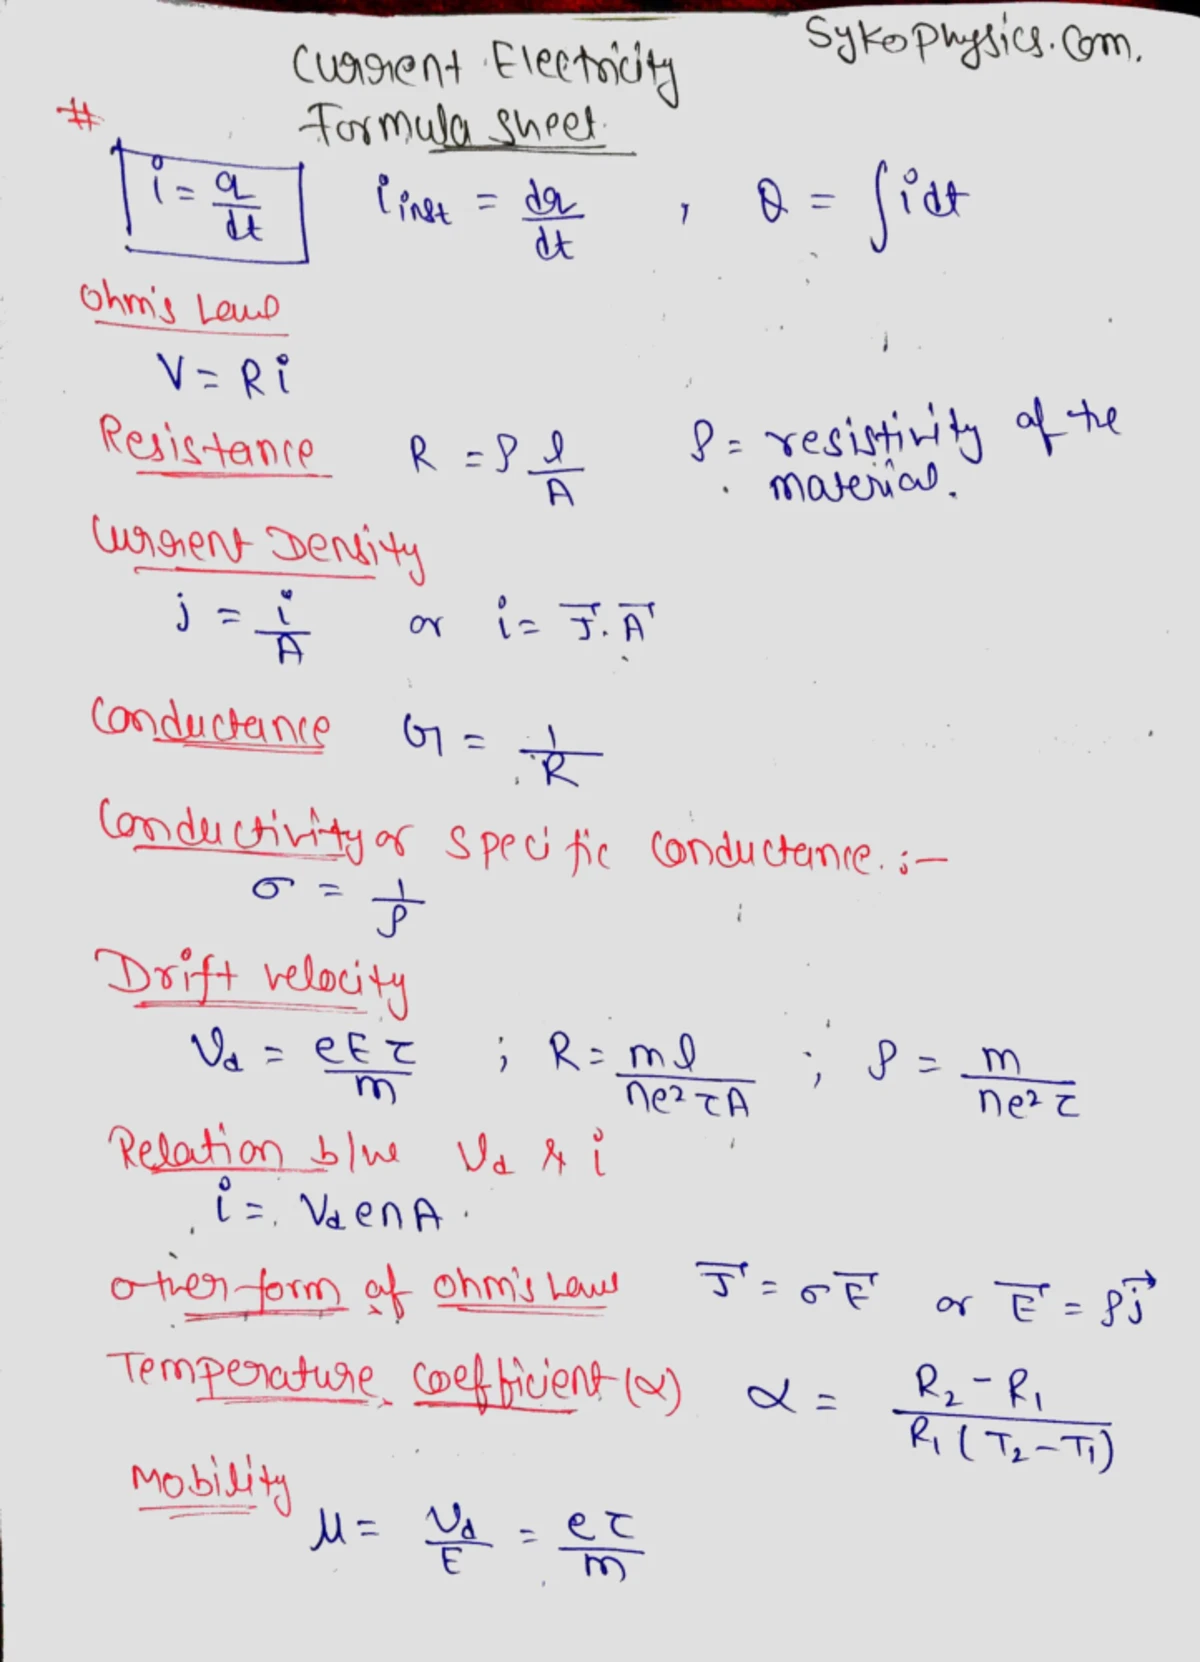 SykoPhysics.Com.
Current Electricity
Formula sheet.
#
i = q/dt   i inst = dq/dt , Q = ∫i dt
Ohm's Law
V = Ri
Resistance   R = ρ l/A   ρ = resistivity of the
material.
Current Density
j = i/A   or   i = J⃗.A⃗
Conductance   G = 1/R
Conductivity or specific conductance. :-
σ = 1/ρ
Drift velocity
Vd = eEτ/m ; R = ml/ne²τA ; ρ = m/ne²τ
Relation b/w Vd & i
i = VdenA.
other form of Ohm's Law   J⃗ = σE⃗   or   E⃗ = ρj⃗
Temperature coefficient (α)   α = R₂-R₁/R₁(T₂-T₁)
Mobility
μ = Vd/E = eτ/m